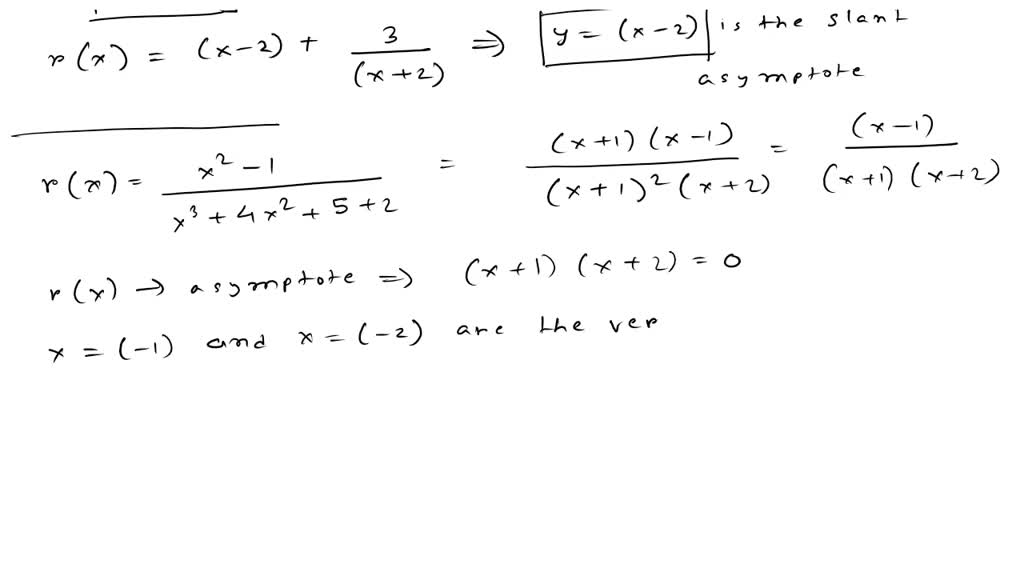 r(x) = (x-2) + 3/(x+2) ⇒ y = (x-2) is the slant
asymptote
r(x) = x² - 1 / x³ + 4x² + 5 + 2 = (x+1) (x-1) / (x+1)² (x+2) = (x-1) / (x+1) (x+2)
r(x) → asymptote ⇒ (x+1) (x+2) = 0
x = (-1) and x = (-2) are the ver